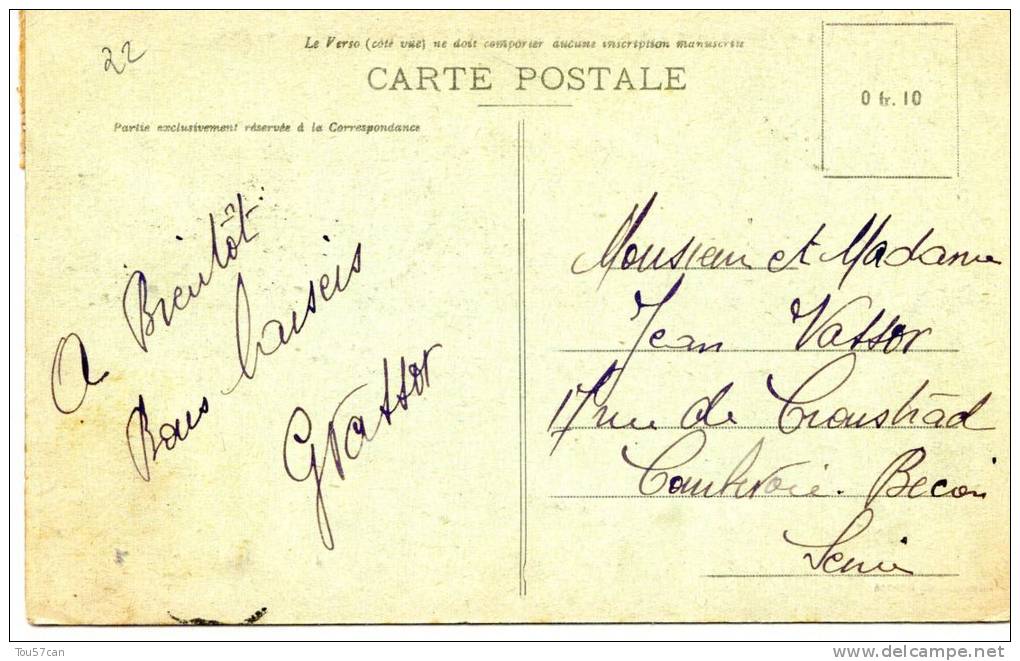 22
Le Verso (côté vue) ne doit comporter aucune inscription manuscrite
CARTE POSTALE
0 fr. 10
Partie exclusivement réservée à la Correspondance
A Bientôt.
Bons baisers
GVassor
Monsieur et Madame
Jean Vassor
17 rue de Cronstad
Courbevoie. Becon
Seine
Tou57can
www.delcampe.net